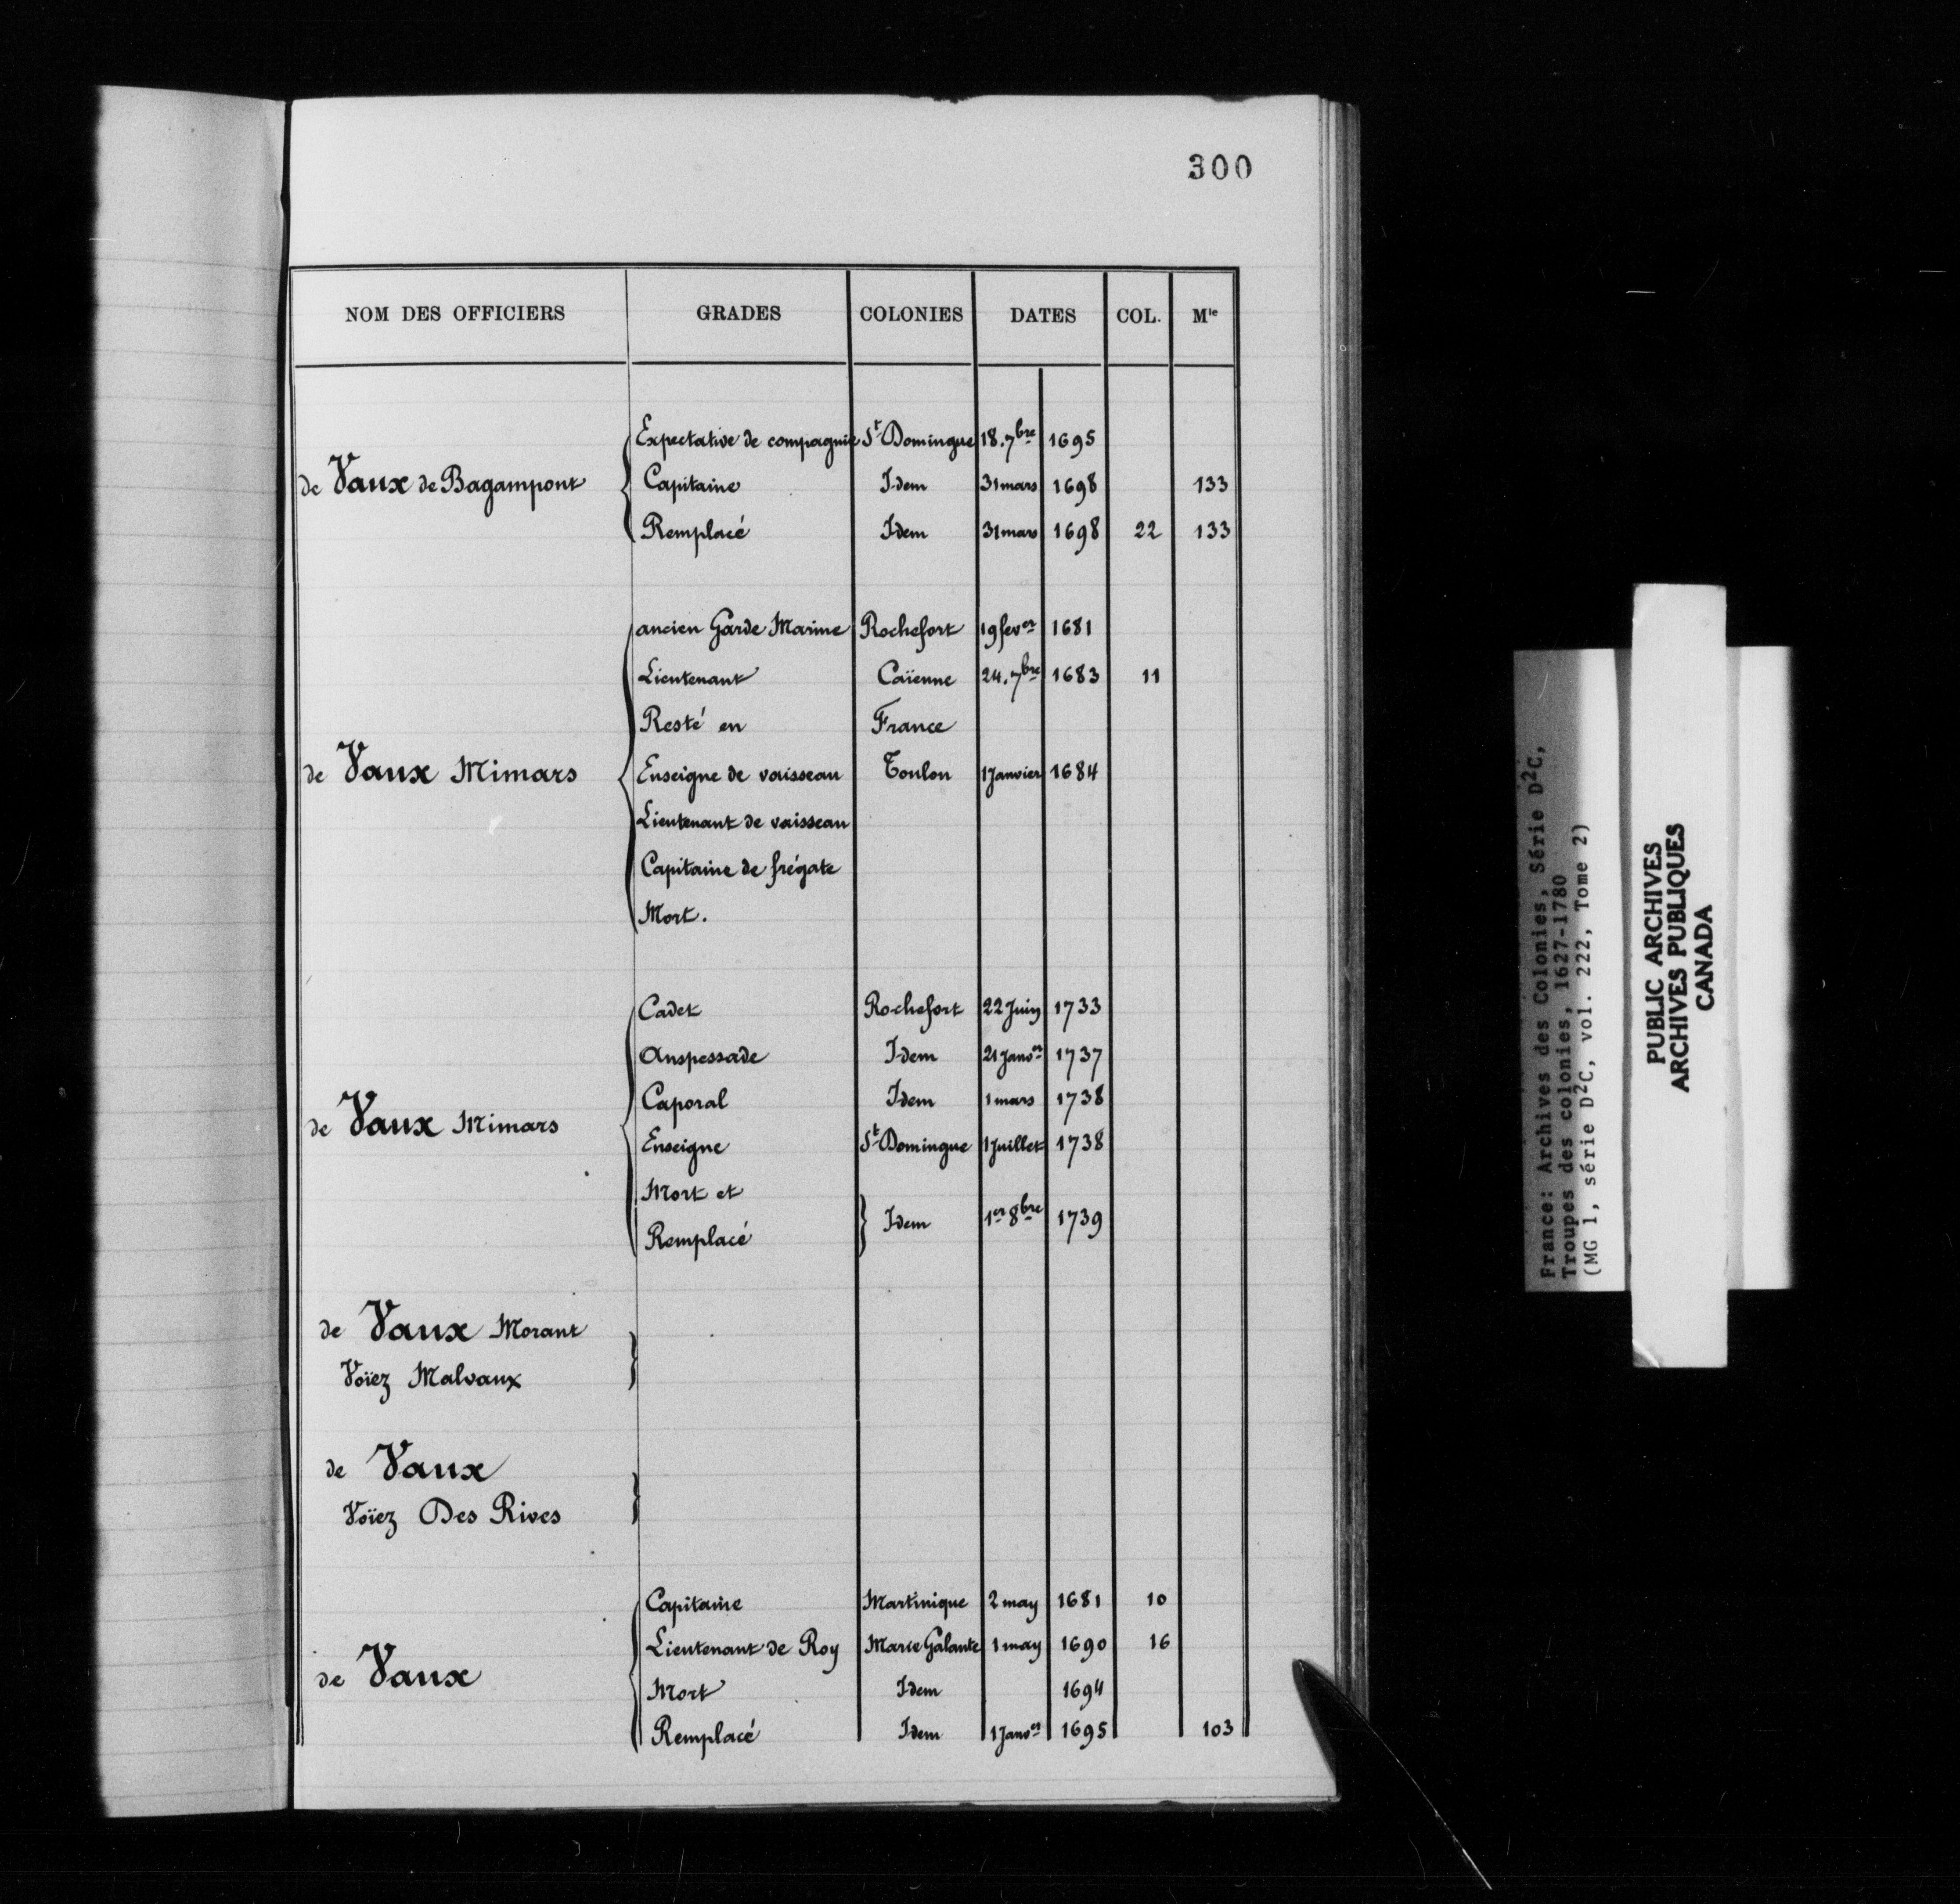 300
NOM DES OFFICIERS GRADES COLONIES DATES COL. Mle
Expectative de compagnie St Domingue 18.7bre 1695
de Vaux de Bagampont Capitaine Idem 31 mars 1698 133
Remplacé Idem 31 mars 1698 22 133
ancien Garde Marine Rochefort 19 fever 1681
Lieutenant Caïenne 24.7bre 1683 11
Resté en France
de Vaux Mimars Enseigne de vaisseau Toulon 1 Janvier 1684
Lieutenant de vaisseau
Capitaine de frégate
Mort.
Cadet Rochefort 22 Juin 1733
Anspessade Idem 21 Janver 1737
Caporal Idem 1 mars 1738
de Vaux Mimars
Enseigne St Domingue 1 Juillet 1738
Mort et
Remplacé } Idem 1er 8bre 1739
de Vaux Morant
Voïez Malvaux
de Vaux
Voïez Des Rives
Capitaine Martinique 2 may 1681 10
Lieutenant de Roy Marie Galante 1 may 1690 16
de Vaux Mort Idem 1694
Remplacé Idem 1 Janver 1695 103
France: Archives des Colonies, Série D2C,
Troupes des colonies, 1627-1780
(MG 1, série D2C, vol. 222, Tome 2)
PUBLIC ARCHIVES
ARCHIVES PUBLIQUES
CANADA